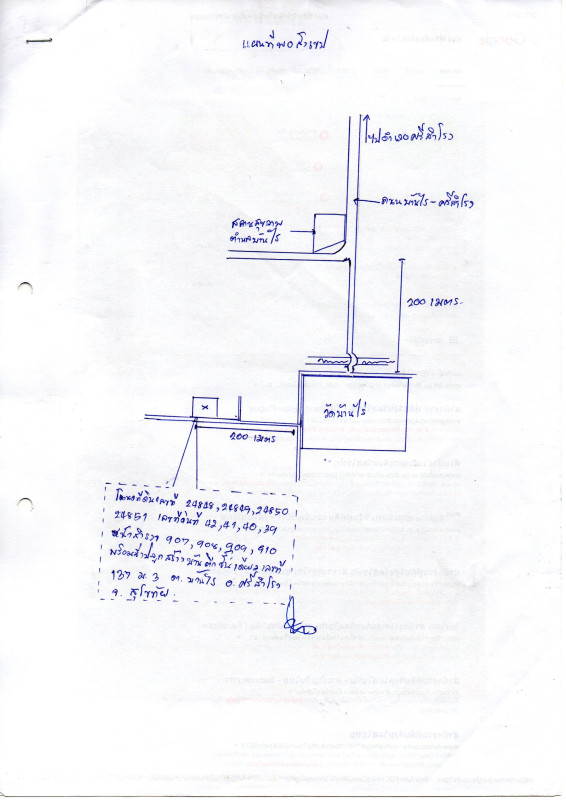 แผนที่พอสังเขป
ไปอำเภอศรีสำโรง
ถนนบ้านไร่-ศรีสำโรง
สถานสุขภาพ
ตำบลบ้านไร่
200 เมตร
วัดบ้านไร่
X
200 เมตร
โฉนดที่ดินเลขที่ 24848, 24849, 24850
24851 เลขที่ดินที่ 42, 41, 40, 39
หน้าสำรวจ 907, 908, 909, 910
พร้อมสิ่งปลูกสร้างบ้านตึกชั้นเดียว เลขที่
137 ม.3 ต.บ้านไร่ อ.ศรีสำโรง
จ.สุโขทัย